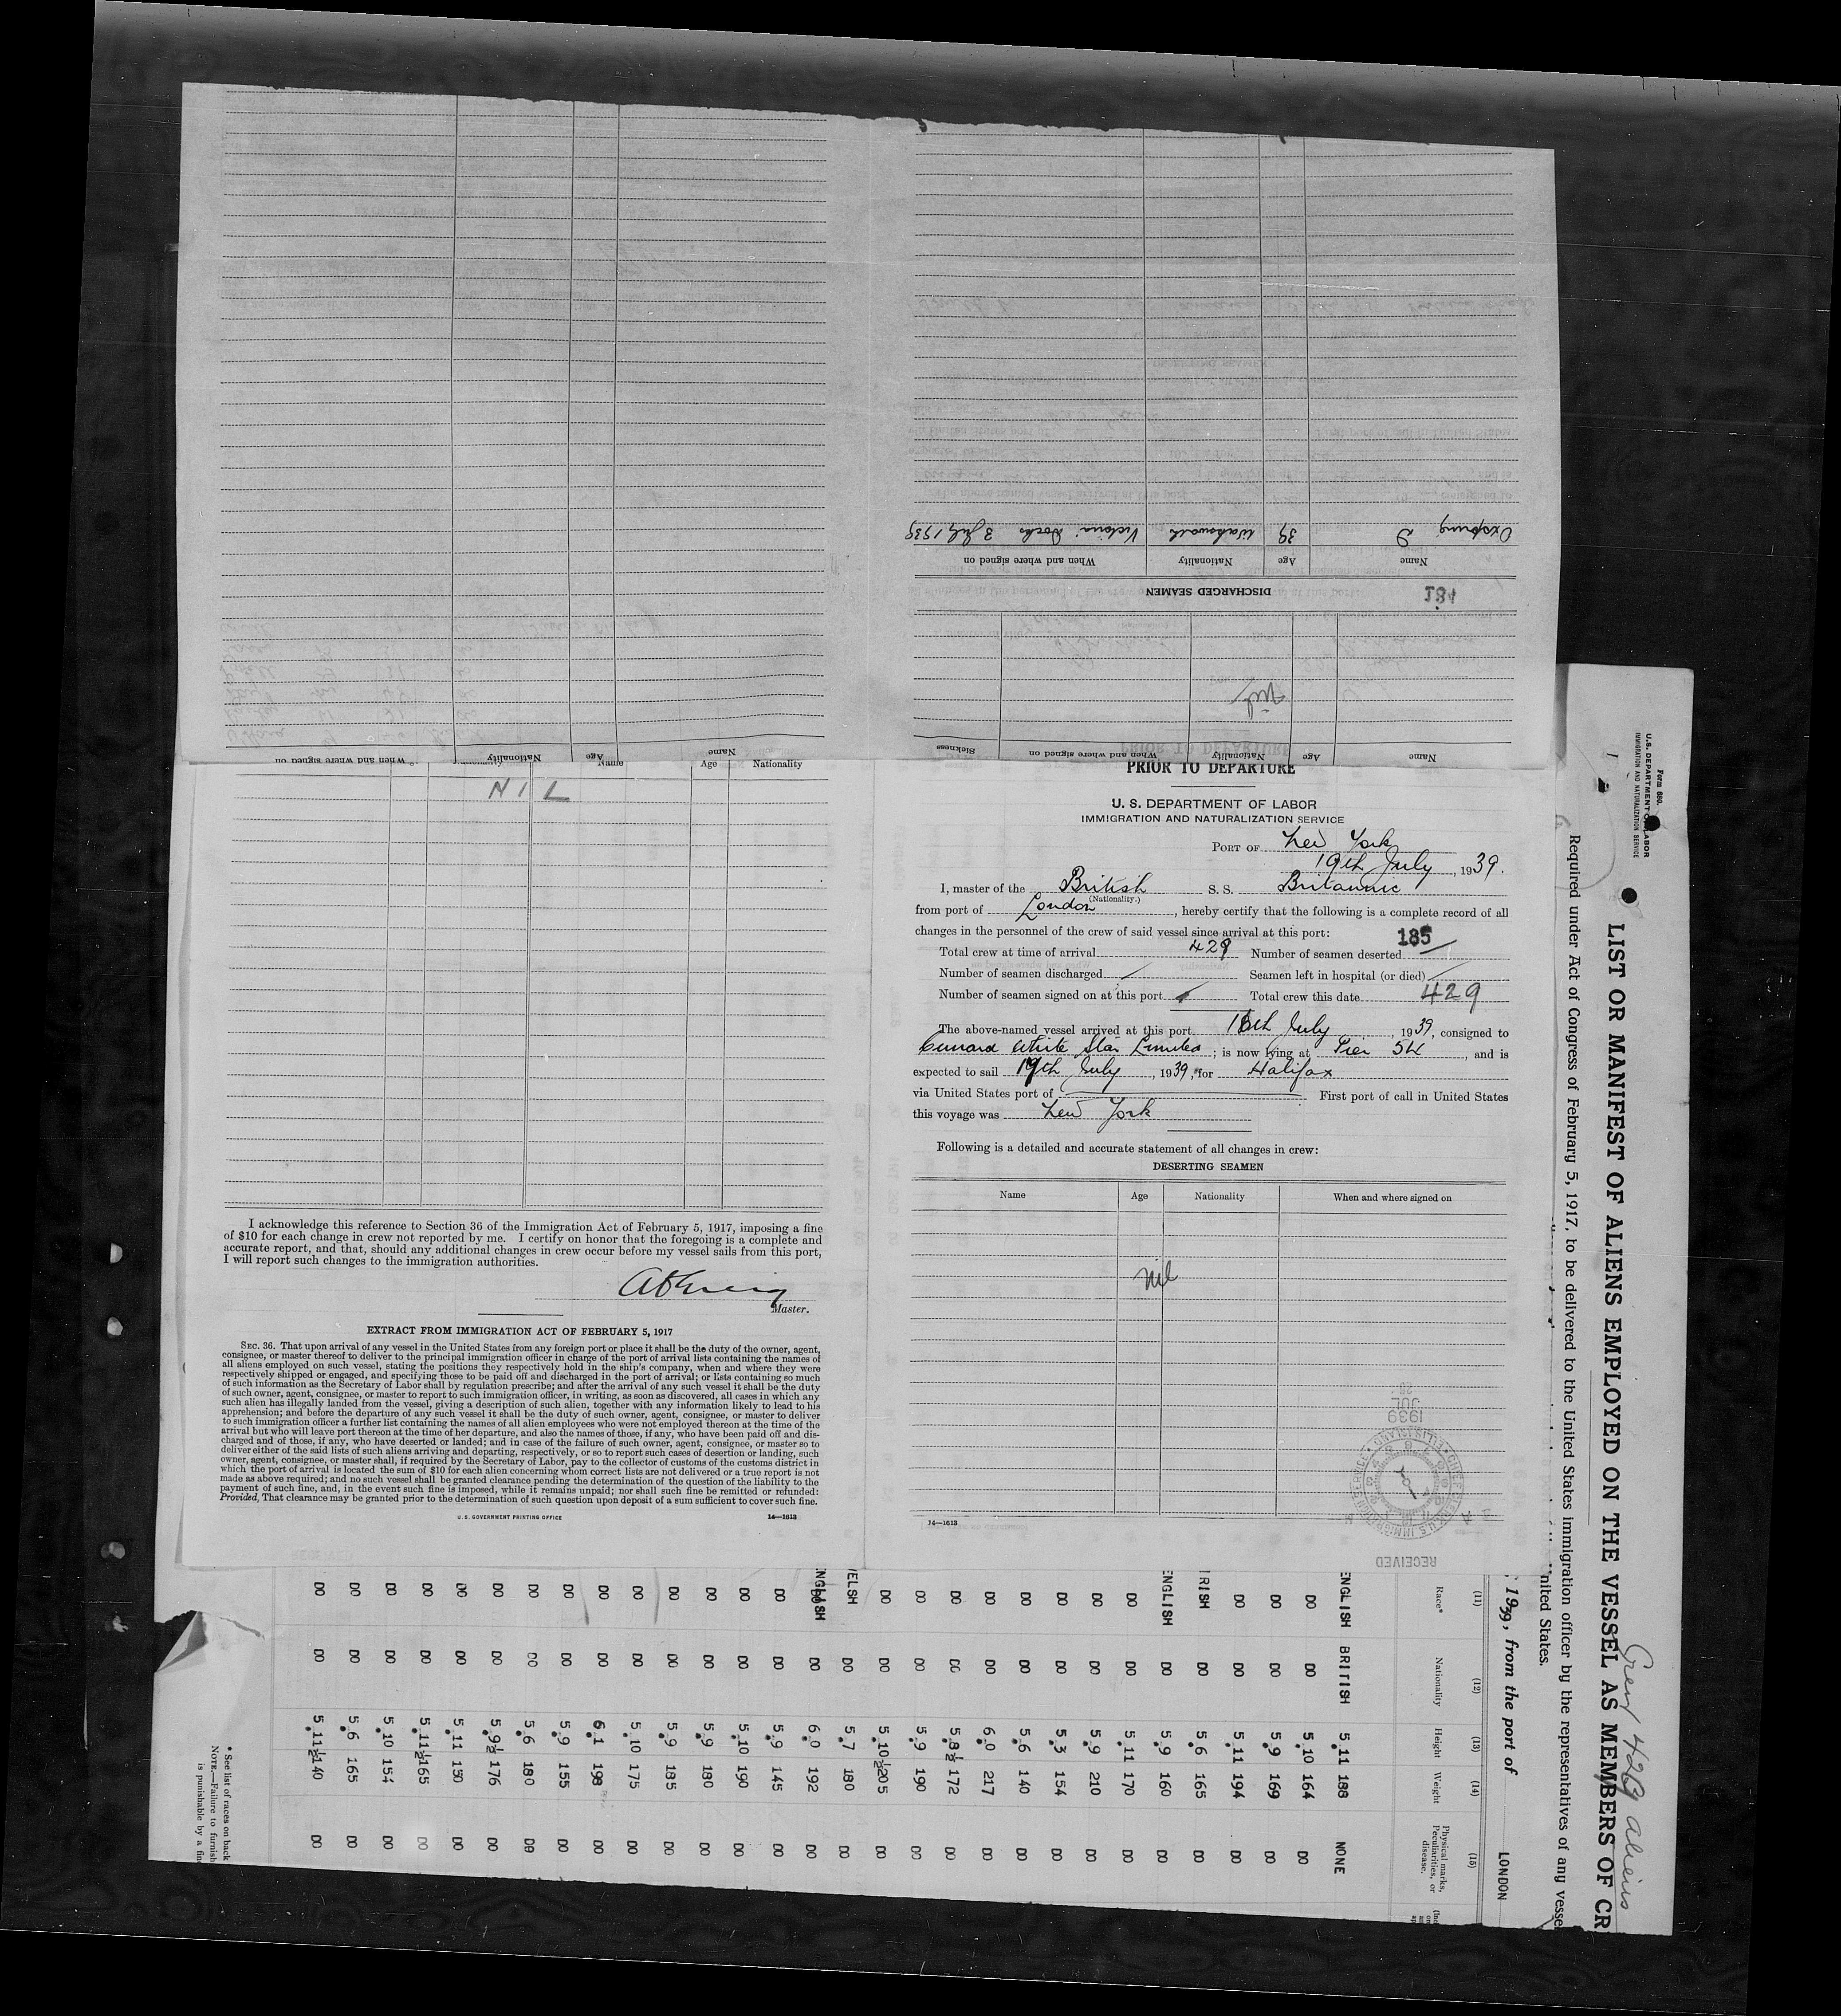 PRIOR TO DEPARTURE
U. S. DEPARTMENT OF LABOR
IMMIGRATION AND NATURALIZATION SERVICE
PORT OF New York
19th July, 1939.
I, master of the British S. S. Britannic
(Nationality.)
from port of London, hereby certify that the following is a complete record of all
changes in the personnel of the crew of said vessel since arrival at this port:
185
Total crew at time of arrival 429 Number of seamen deserted
Number of seamen discharged Seamen left in hospital (or died)
Number of seamen signed on at this port Total crew this date 429
The above-named vessel arrived at this port 18th July, 1939, consigned to
Cunard White Star Limited; is now lying at Pier 54, and is
expected to sail 19th July, 1939, for Halifax
via United States port of First port of call in United States
this voyage was New York
Following is a detailed and accurate statement of all changes in crew:
DESERTING SEAMEN
Name Age Nationality When and where signed on
Nil
14—1613
RECEIVED
1939
JUL
Name Age Nationality When and where signed on Sickness
Nil
DISCHARGED SEAMEN
Name Age Nationality When and where signed on
D 39 Victoria Docks 3 July 1939
Name Age Nationality When and where signed on
Name Age Nationality
NIL
I acknowledge this reference to Section 36 of the Immigration Act of February 5, 1917, imposing a fine
of $10 for each change in crew not reported by me. I certify on honor that the foregoing is a complete and
accurate report, and that, should any additional changes in crew occur before my vessel sails from this port,
I will report such changes to the immigration authorities.
Master.
EXTRACT FROM IMMIGRATION ACT OF FEBRUARY 5, 1917
SEC. 36. That upon arrival of any vessel in the United States from any foreign port or place it shall be the duty of the owner, agent,
consignee, or master thereof to deliver to the principal immigration officer in charge of the port of arrival lists containing the names of
all aliens employed on such vessel, stating the positions they respectively hold in the ship's company, when and where they were
respectively shipped or engaged, and specifying those to be paid off and discharged in the port of arrival; or lists containing so much
of such information as the Secretary of Labor shall by regulation prescribe; and after the arrival of any such vessel it shall be the duty
of such owner, agent, consignee, or master to report to such immigration officer, in writing, as soon as discovered, all cases in which any
such alien has illegally landed from the vessel, giving a description of such alien, together with any information likely to lead to his
apprehension; and before the departure of any such vessel it shall be the duty of such owner, agent, consignee, or master to deliver
to such immigration officer a further list containing the names of all alien employees who were not employed thereon at the time of the
arrival but who will leave port thereon at the time of her departure, and also the names of those, if any, who have been paid off and dis-
charged and of those, if any, who have deserted or landed; and in case of the failure of such owner, agent, consignee, or master so to
deliver either of the said lists of such aliens arriving and departing, respectively, or so to report such cases of desertion or landing, such
owner, agent, consignee, or master shall, if required by the Secretary of Labor, pay to the collector of customs of the customs district in
which the port of arrival is located the sum of $10 for each alien concerning whom correct lists are not delivered or a true report is not
made as above required; and no such vessel shall be granted clearance pending the determination of the question of the liability to the
payment of such fine, and, in the event such fine is imposed, while it remains unpaid; nor shall such fine be remitted or refunded:
Provided, That clearance may be granted prior to the determination of such question upon deposit of a sum sufficient to cover such fine.
U. S. GOVERNMENT PRINTING OFFICE 14—1613
Form 680.
U. S. DEPARTMENT OF LABOR
IMMIGRATION AND NATURALIZATION SERVICE
Crew 429 aliens
LIST OR MANIFEST OF ALIENS EMPLOYED ON THE VESSEL AS MEMBERS OF CR
Required under Act of Congress of February 5, 1917, to be delivered to the United States immigration officer by the representatives of any vesse
nited States.
1939, from the port of LONDON
(11) (12) (13) (14) (15)
Race* Nationality Height Weight Physical marks, Peculiarities, or disease.
ENGLISH BRITISH 5.11 188 NONE
DO DO 5.10 164 DO
DO DO 5.9 169 DO
DO DO 5.11 194 DO
IRISH DO 5.6 165 DO
ENGLISH DO 5.9 160 DO
DO DO 5.11 170 DO
DO DO 5.9 210 DO
DO DO 5.3 154 DO
DO DO 5.6 140 DO
DO DO 6.0 217 DO
DO DO 5.8½ 172 DO
DO DO 5.9 190 DO
DO DO 5.10½ 205 DO
WELSH DO 5.7 180 DO
ENGLISH DO 6.0 192 DO
DO DO 5.9 145 DO
DO DO 5.10 190 DO
DO DO 5.9 180 DO
DO DO 5.9 185 DO
DO DO 5.10 175 DO
DO DO 6.1 198 DO
DO DO 5.9 155 DO
DO DO 5.6 180 DO
DO DO 5.9½ 176 DO
DO DO 5.11 150 DO
DO DO 5.11½ 165 DO
DO DO 5.10 154 DO
DO DO 5.6 165 DO
DO DO 5.11½ 140 DO
* See list of races on back
NOTE.—Failure to furnish
is punishable by a fin